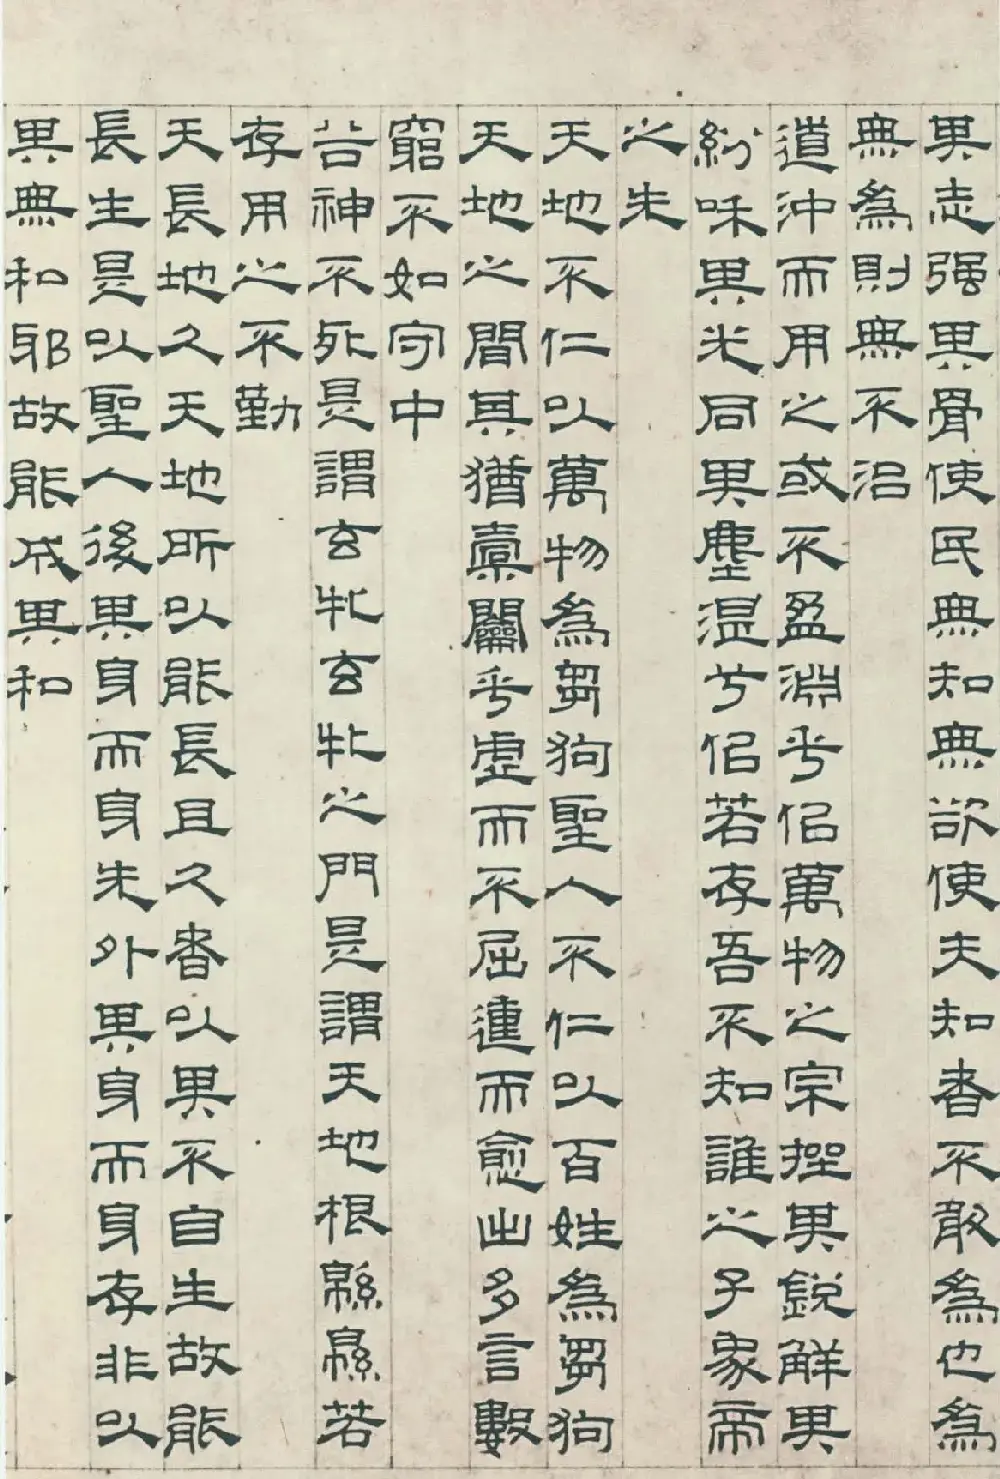 其志强其骨使民無知無欲使夫知者不敢為也為
無為則無不治
道沖而用之或不盈淵乎似萬物之宗挫其銳解其
紛咊其光同其塵湛兮似若存吾不知誰之子象帝
之先
天地不仁以萬物為芻狗聖人不仁以百姓為芻狗
天地之間其猶橐籥乎虛而不屈動而愈出多言數
窮不如守中
谷神不死是謂玄牝玄牝之門是謂天地根緜緜若
存用之不勤
天長地久天地所以能長且久者以其不自生故能
長生是以聖人後其身而身先外其身而身存非以
其無私邪故能成其私